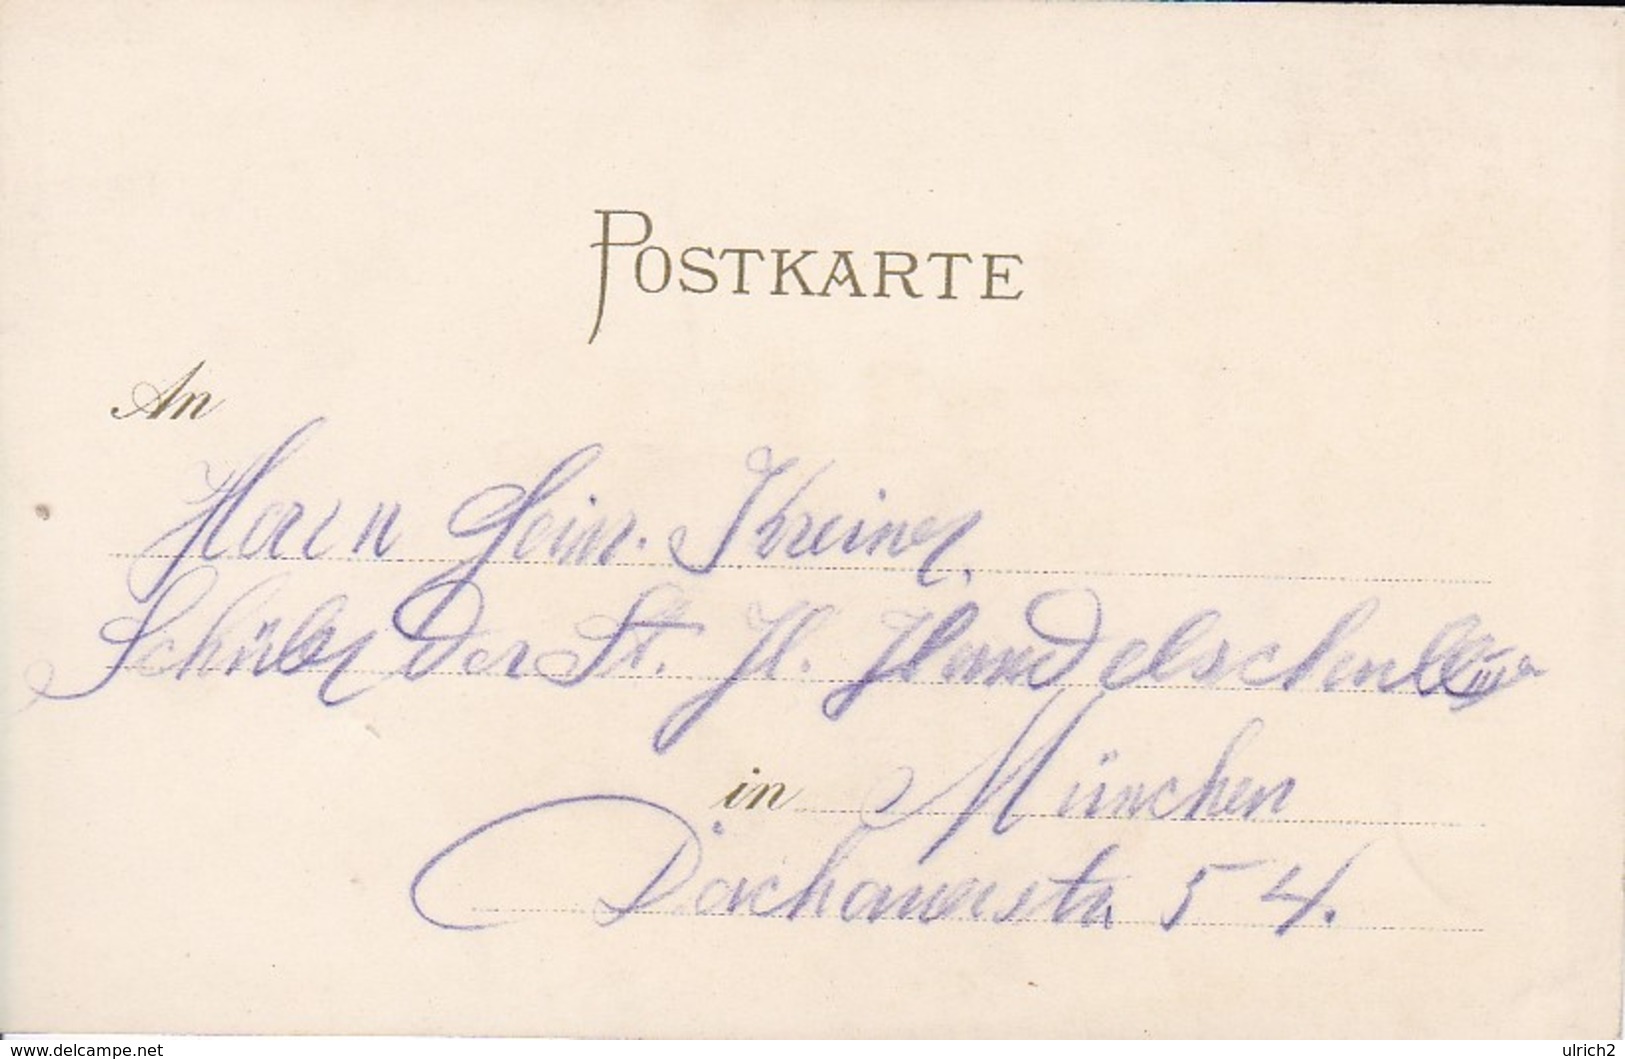 POSTKARTE
An
Herrn Heinr. Kreiner,
Schüler der St. H. Handelschule
in München
Dachauerstr. 54.
www.delcampe.net
ulrich2